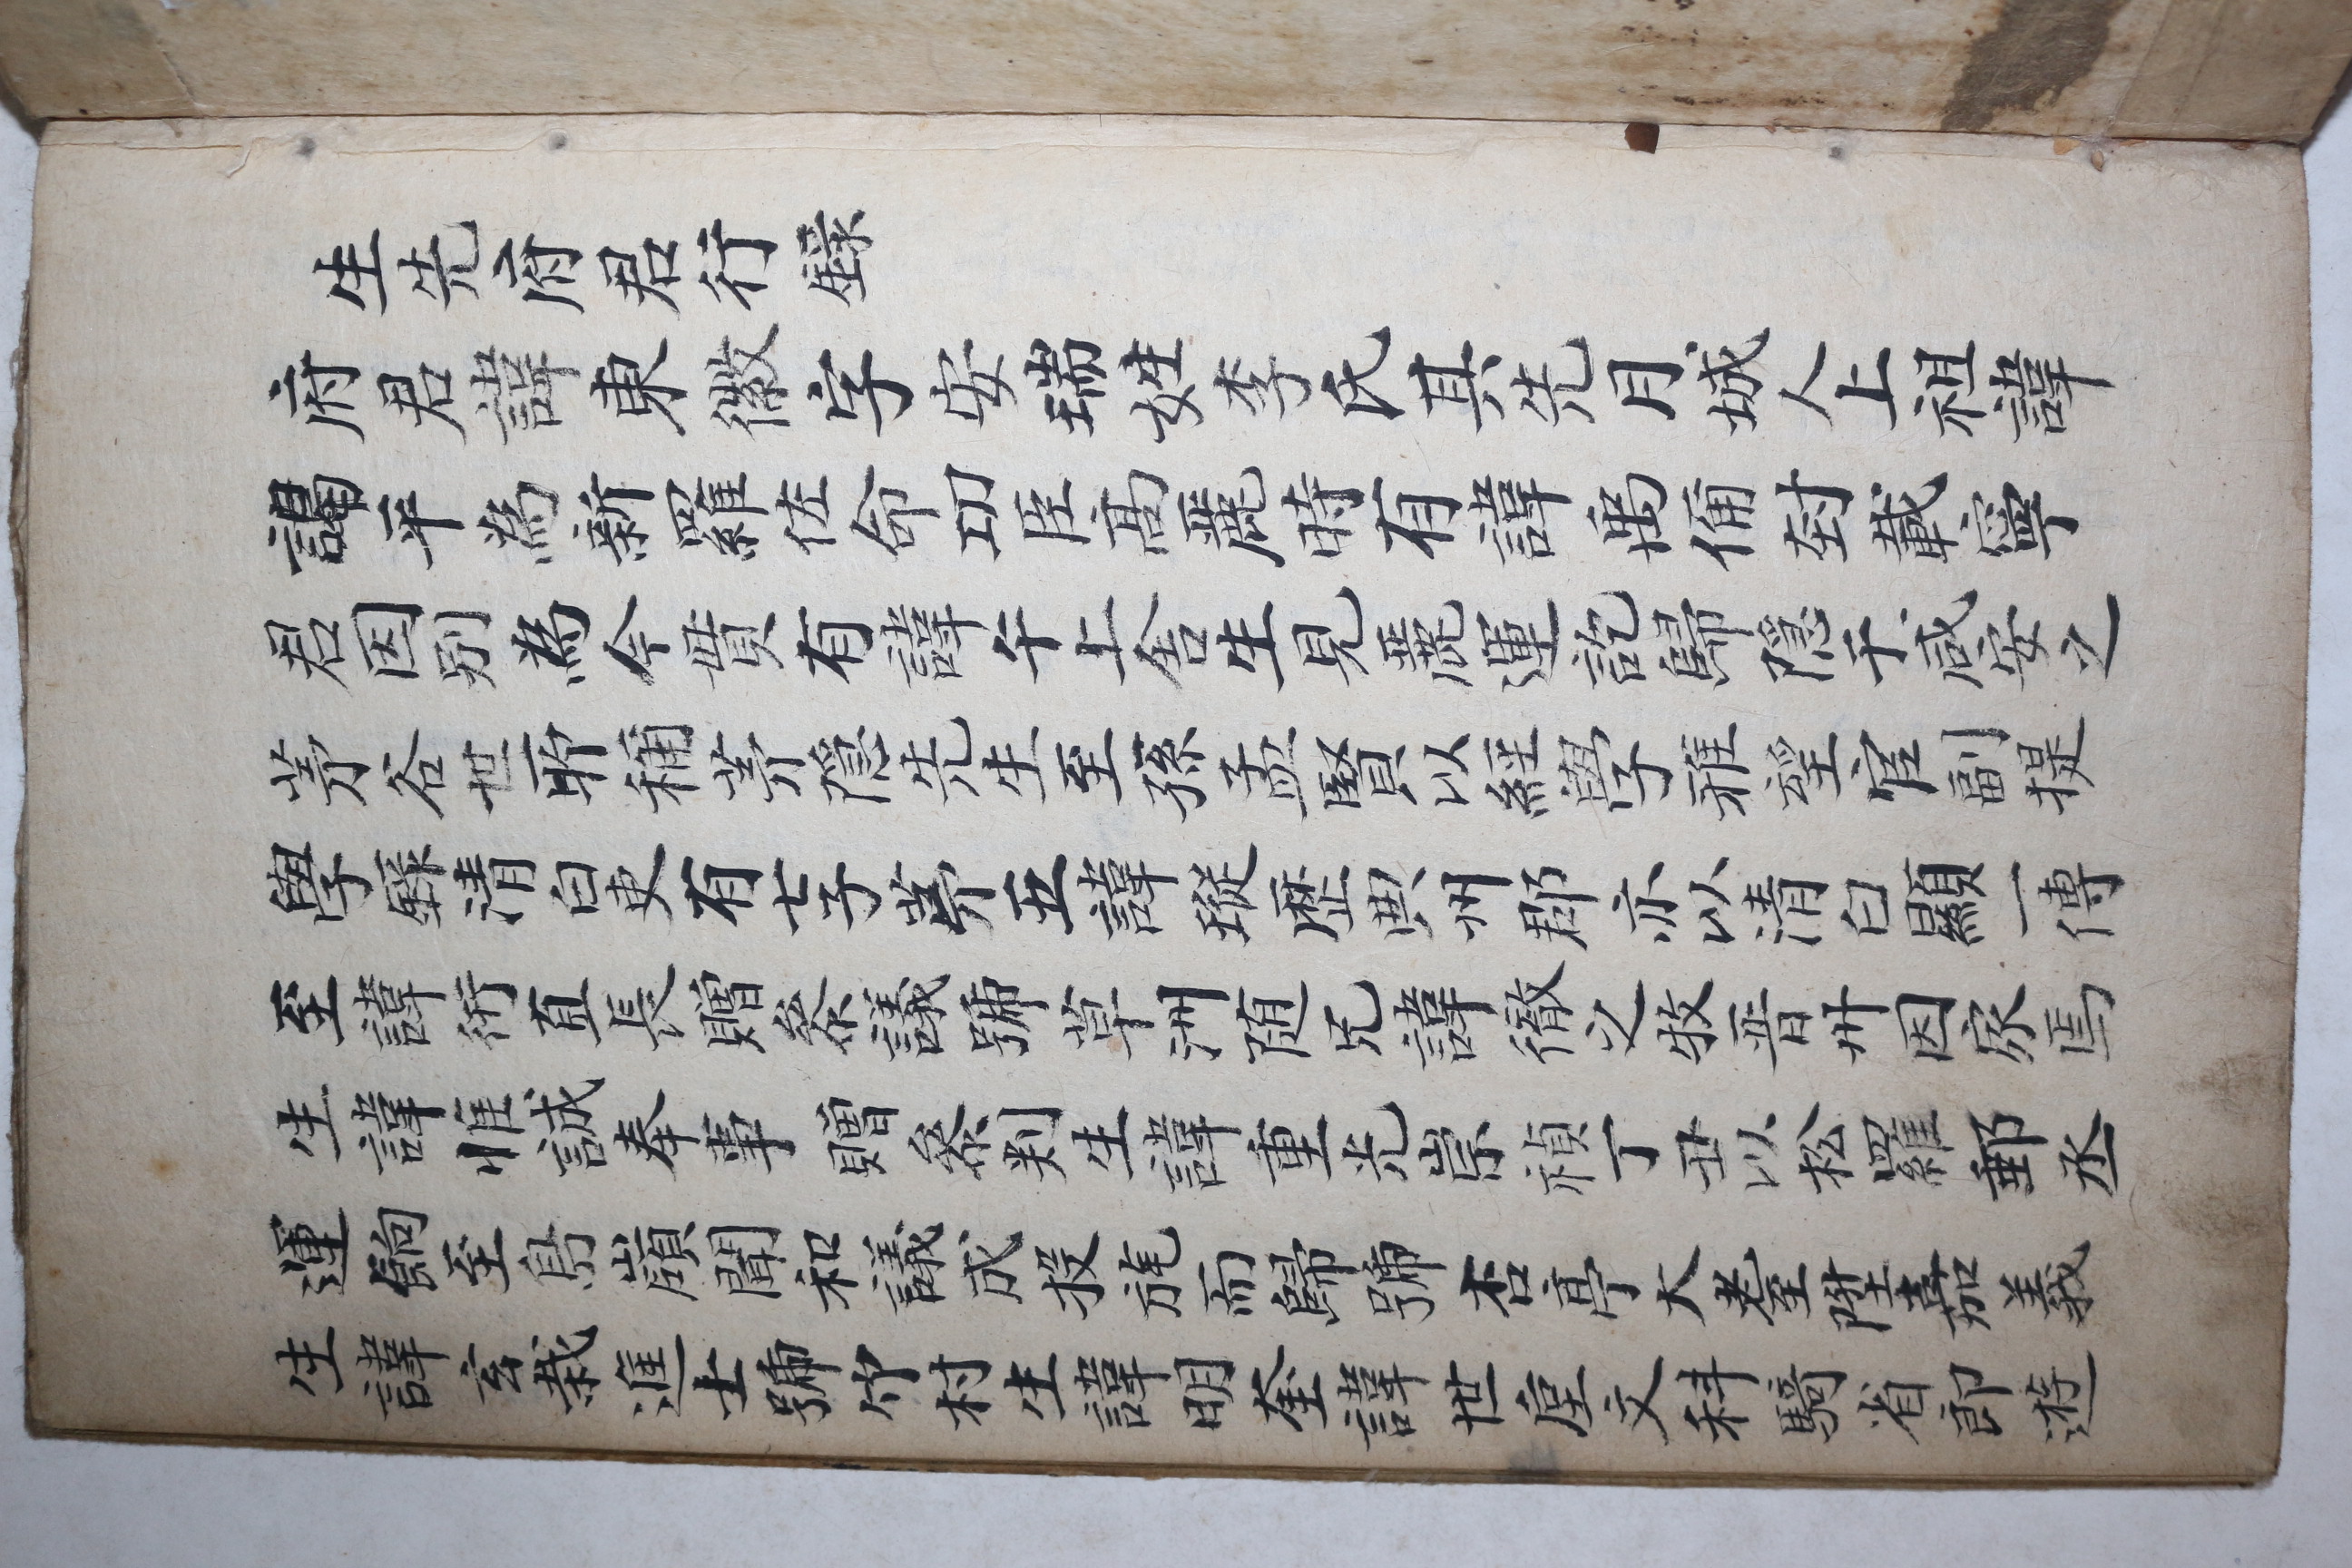 生先府君行錄
府君諱東徽字安瑞姓李氏其先月城人上祖諱
謁平為新羅佐命功臣高麗時有諱禹偁封載寧
君因別為今貫有諱午上舍生見麗運訖歸隱于咸安之
茅谷世所稱茅隱先生至孫孟賢以經學雅望官副提
學錄清白吏有七子第五諱瑽歷典州郡亦以清白顯一傳
至諱衎直長贈參議號草洲随兄諱徹之牧晋州因家焉
生諱惟諴奉事贈參判生諱重光崇禎丁丑以松羅郵丞
運餉至鳥嶺聞和議成投旄而歸號杏亭大耋陞嘉義
生諱玄栽進士號竹村生諱明奎諱世垕文科騎省郎